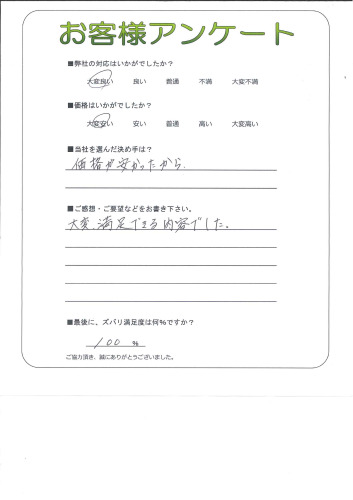 お客様アンケート
■弊社の対応はいかがでしたか？
大変良い 良い 普通 不満 大変不満
■価格はいかがでしたか？
大変安い 安い 普通 高い 大変高い
■当社を選んだ決め手は？
価格が安かったから.
■ご感想・ご要望などをお書き下さい。
大変、満足できる内容でした。
■最後に、ズバリ満足度は何%ですか？
100 %
ご協力頂き、誠にありがとうございました。